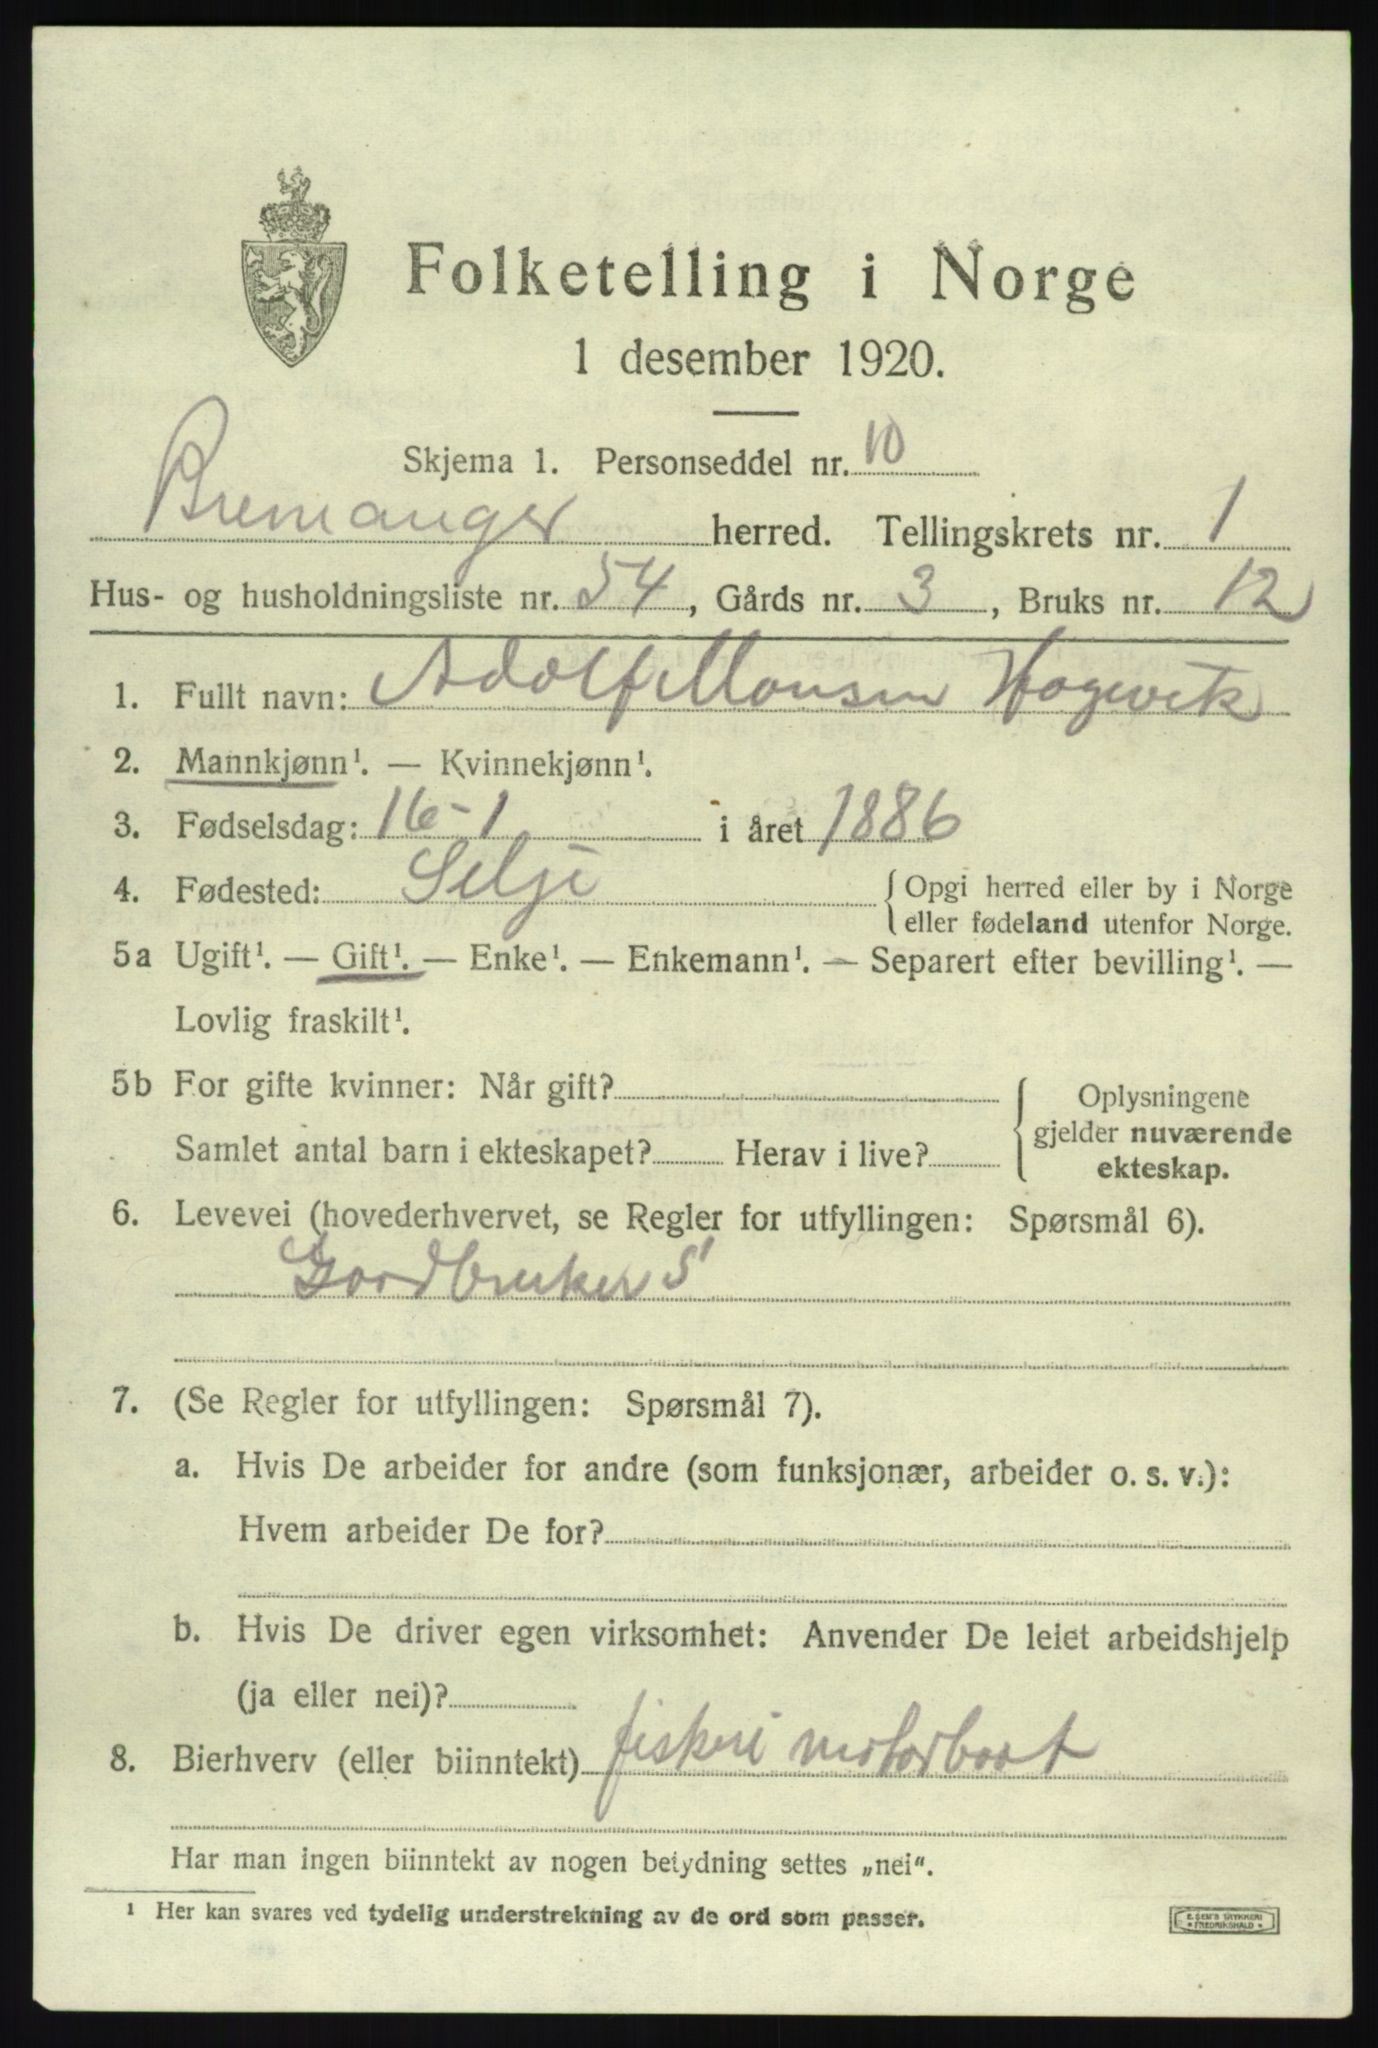 Folketelling i Norge
1 desember 1920.
Skjema 1. Personseddel nr. 10
Bremanger herred. Tellingskrets nr. 1
Hus- og husholdningsliste nr. 54, Gårds nr. 3, Bruks nr. 12
1. Fullt navn: Adolf Monsen Hagevik
2. Mannkjønn¹. — Kvinnekjønn¹.
3. Fødselsdag: 16-1 i året 1886
4. Fødested: Selje {Opgi herred eller by i Norge
eller fødeland utenfor Norge.
5a Ugift¹. — Gift¹. — Enke¹. — Enkemann¹. — Separert efter bevilling¹. —
Lovlig fraskilt¹.
5b For gifte kvinner: Når gift?
Samlet antal barn i ekteskapet? Herav i live?
{Oplysningene
gjelder nuværende
ekteskap.
6. Levevei (hovederhvervet, se Regler for utfyllingen: Spørsmål 6).
Gardbruker S
7. (Se Regler for utfyllingen: Spørsmål 7).
a. Hvis De arbeider for andre (som funksjonær, arbeider o. s. v.):
Hvem arbeider De for?
b. Hvis De driver egen virksomhet: Anvender De leiet arbeidshjelp
(ja eller nei)?
8. Bierhverv (eller biinntekt) fiskeri motorboat
Har man ingen biinntekt av nogen betydning settes „nei“.
¹ Her kan svares ved tydelig understrekning av de ord som passer.
E. SEM'S TRYKKERI
• FREDRIKSHALD •